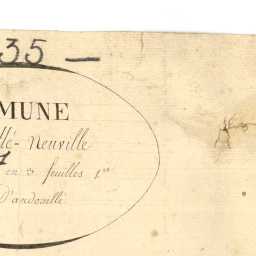 35 —
MUNE
llé-Neuville
en 3 feuilles 1re
D'andouillé